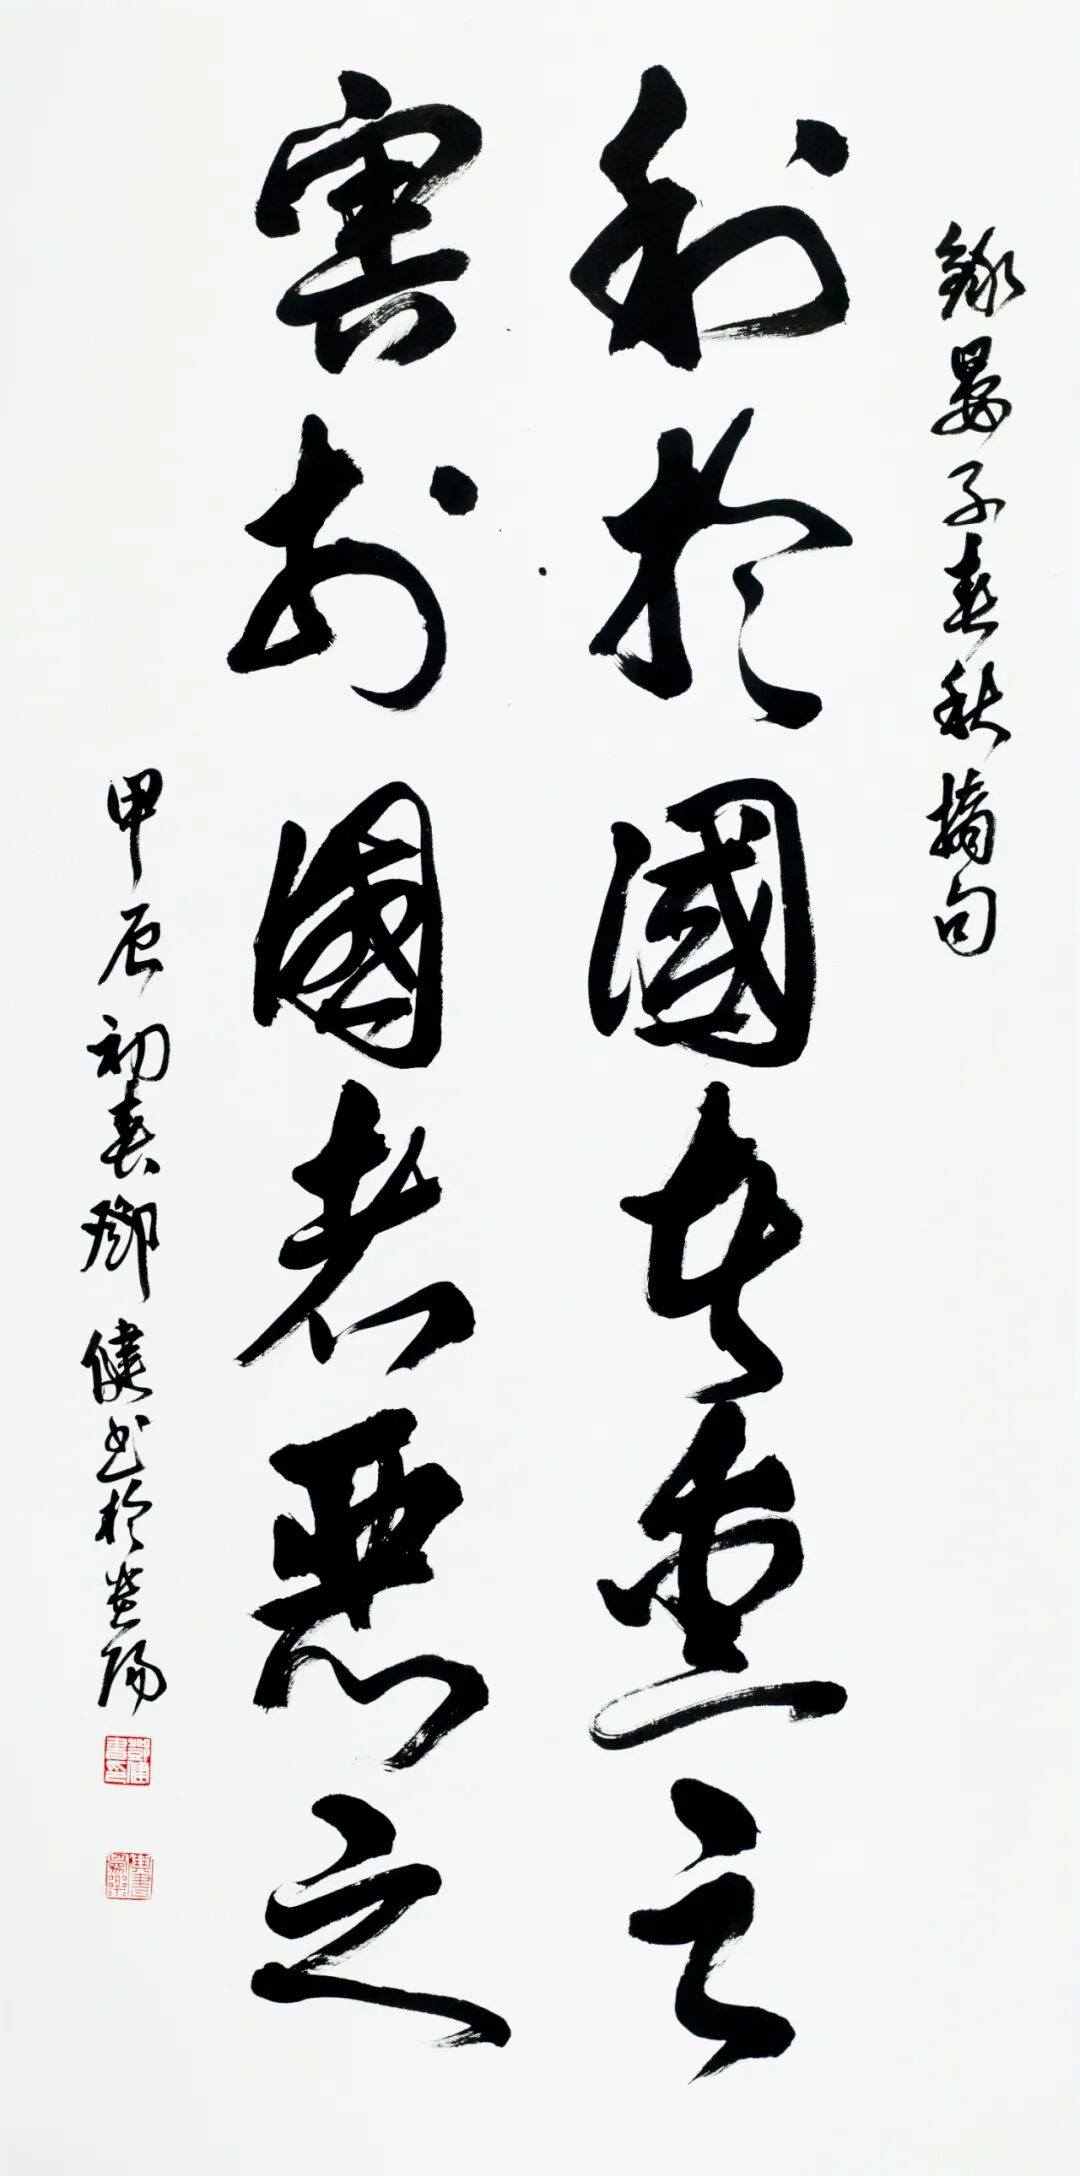 錄晏子春秋摘句
利於國者愛之
害於國者惡之
甲辰初春鄧健书於陽
鄧健書印